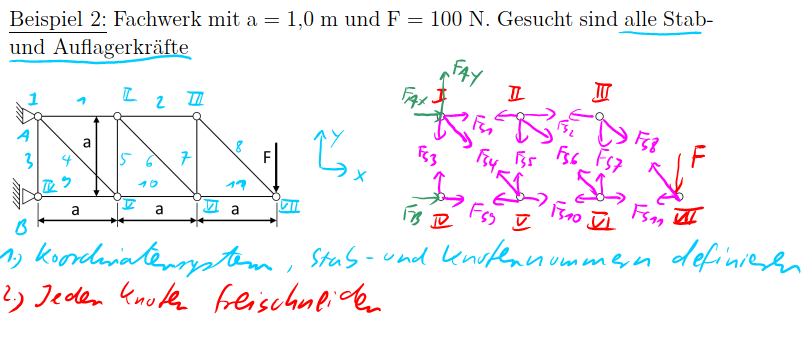 Beispiel 2: Fachwerk mit a = 1,0 m und F = 100 N. Gesucht sind alle Stab-
und Auflagerkräfte
I 1 II 2 III
A
3 4 5 6 7 8
a
F
IV 9 10 11
B V VI VII
a a a
Y
x
FAY
FAx I II III
FS1 FS2 FS8
FS3 FS4 FS5 FS6 FS7 F
FB IV FS9 V FS10 VI FS11 VII
1.) Koordinatensystem, Stab- und Knotennummern definieren
2.) Jeden Knoten freischneiden